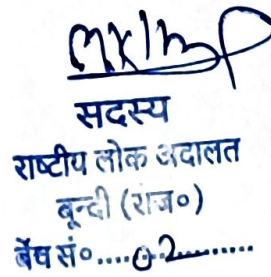 सदस्य
राष्टीय लोक अदालत
बून्दी (राज०)
बेंच सं०....02.........